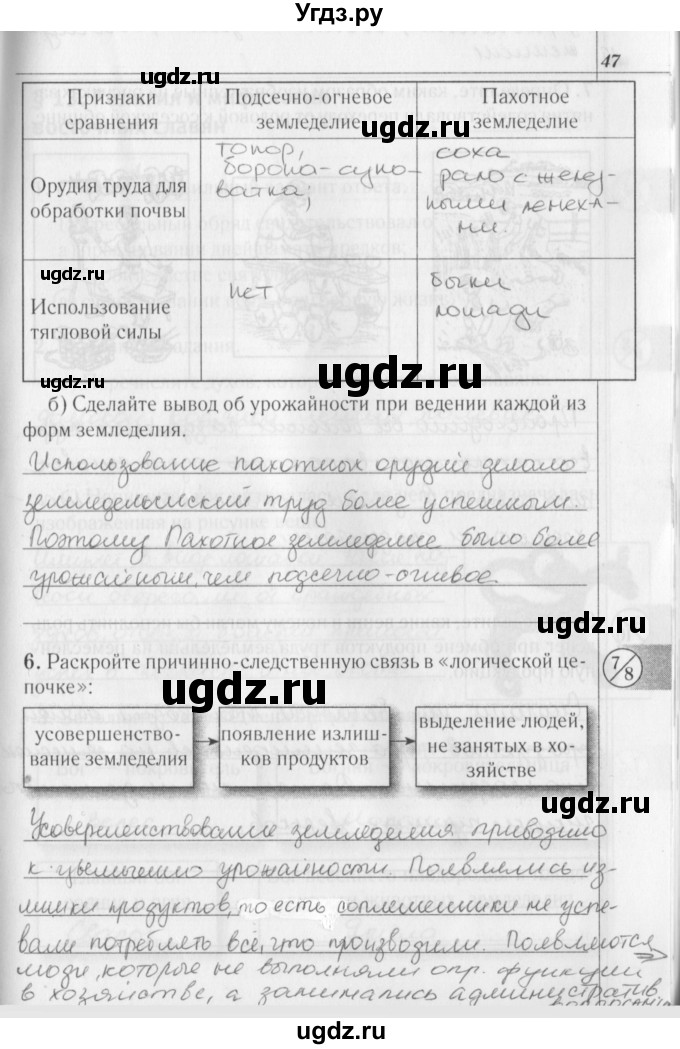 Угдз.ру
47
Признаки сравнения
Подсечно-огневое земледелие
Пахотное земледелие
Орудия труда для обработки почвы
топор,
борона-суко-
ватка,
соха
рало с желез-
ными
ни.
Использование тягловой силы
нет
быки
лошади
б) Сделайте вывод об урожайности при ведении каждой из
форм земледелия.
Использование пахотных орудий делало
земледельческий труд более успешным.
Поэтому Пахотное земледелие было более
урожайным, чем подсечно-огневое.
6. Раскройте причинно-следственную связь в «логической це-
почке»:
7/8
усовершенство-
вание земледелия
появление излиш-
ков продуктов
выделение людей,
не занятых в хо-
зяйстве
Усовершенствование земледелия приводило
к увеличению урожайности. Появлялись из-
лишки продуктов, то есть соплеменники не успе-
вали потреблять всё, что производили. Появляются
люди, которые не выполняли опр. функции
в хозяйстве, а занимались административ
ugdz.ru
ugdz.ru
ugdz.ru
ugdz.ru
ugdz.ru
ugdz.ru
ugdz.ru
ugdz.ru
ugdz.ru
ugdz.ru
ugdz.ru
ugdz.ru
ugdz.ru
ugdz.ru